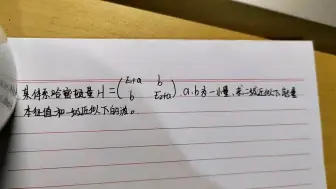 某体系哈密顿量 H = (E₁+a b
b E₂+a) a.b为一小量,求二级近似下能量
本征值和一级近似下的波。